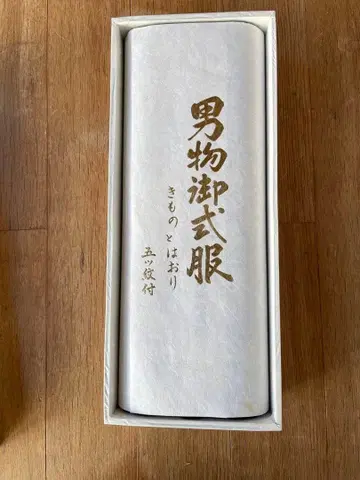 男物御式服
きものとはおり
五ッ紋付